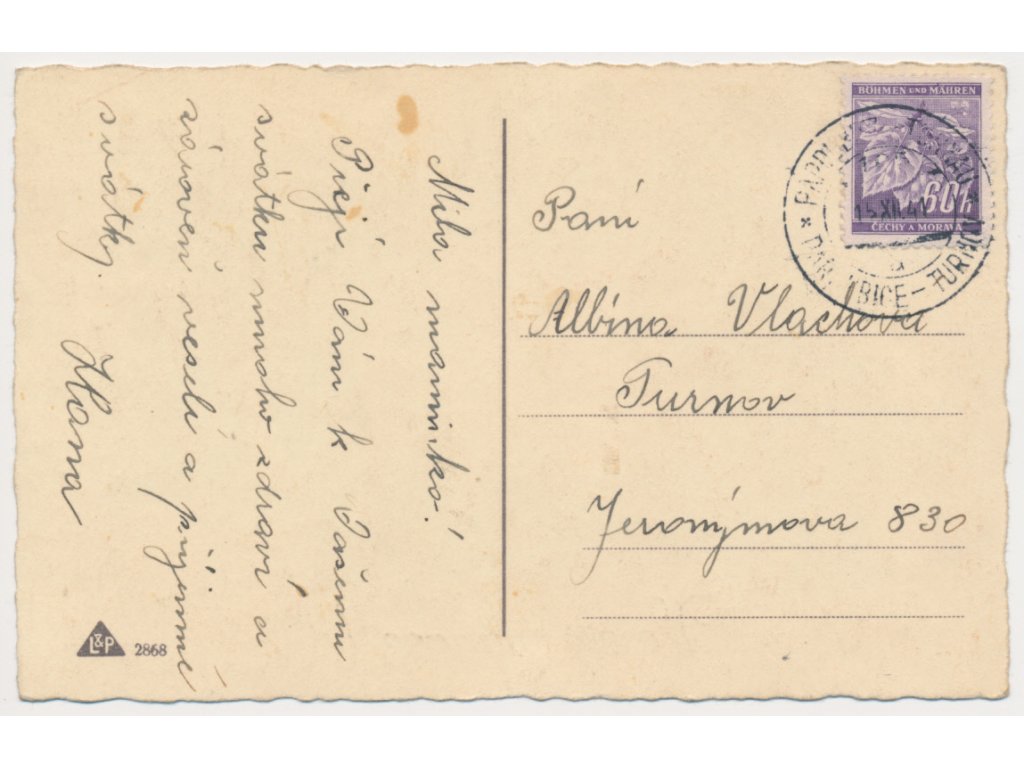 Milá maminko!
Přeji Vám k Vašemu
svátku mnoho zdraví a
zároveň veselé a příjemné
svátky.
Hana
Paní
Albína Vlachová
Turnov
Jeronýmova 830
BÖHMEN UND MÄHREN
60h
ČECHY A MORAVA
15.XII.41
PARDUBICE – TURNOV
L&P
2868